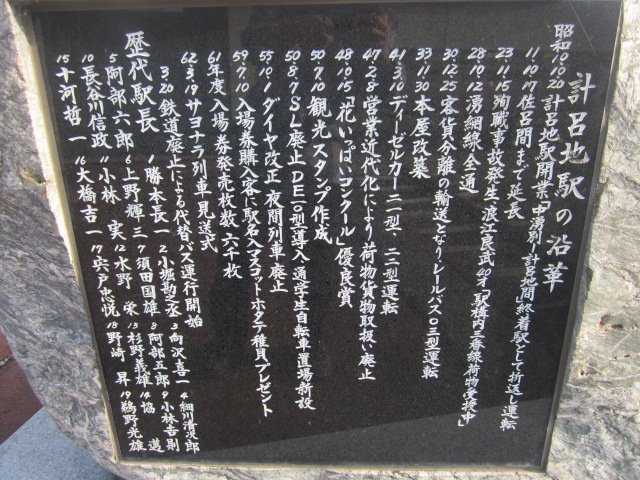 計呂地駅の沿革
昭和10.10.20 計呂地駅開業「中湧別・計呂地間」終着駅として折返し運転
11.10.17 佐呂間まで延長
23.11.15 殉職事故発生、浪江良武40才「駅構内二番線荷物受授中」
28.10.12 湧網線全通
30.12.25 客貨分離の輸送となりレールバス〇三型運転
33.11.30 本屋改築
41.3.10 ディーゼルカー二一型・二二型運転
47.2.8 営業近代化により荷物貨物取扱い廃止
48.10.15 「花いっぱいコンクール」優良賞
50.7.10 観光スタンプ作成
50.8.7 SL廃止DE一〇型導入、通学生自転車置場新設
55.10.1 ダイヤ改正 夜間列車廃止
59.7.10 入場券購入客に駅名入マスコットホタテ稚貝プレゼント
61年度入場券発売枚数六千枚
62.3.19 サヨナラ列車見送式
3.20 鉄道廃止による代替バス運行開始
歴代駅長 1 勝本長一 2 小堀勘之丞 3 向沢喜一 4 細川清次郎
5 阿部六郎 6 上野輝三 7 須田国雄 8 阿部五郎 9 小林吉則
10 長谷川信政 11 小林実 12 水野栄 13 杉野義雄 14 協邁
15 十河哲一 16 大橋吉一 17 宍戸忠悦 18 野崎昇 19 鵜野光雄